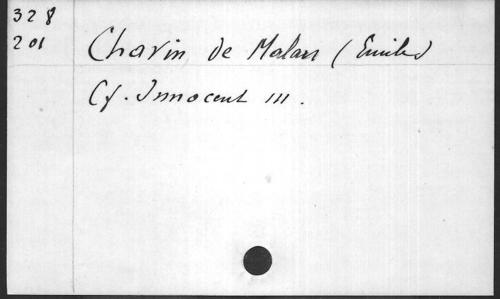 328
201
Chavin de Malan (Emile)
Cf. Innocent III.